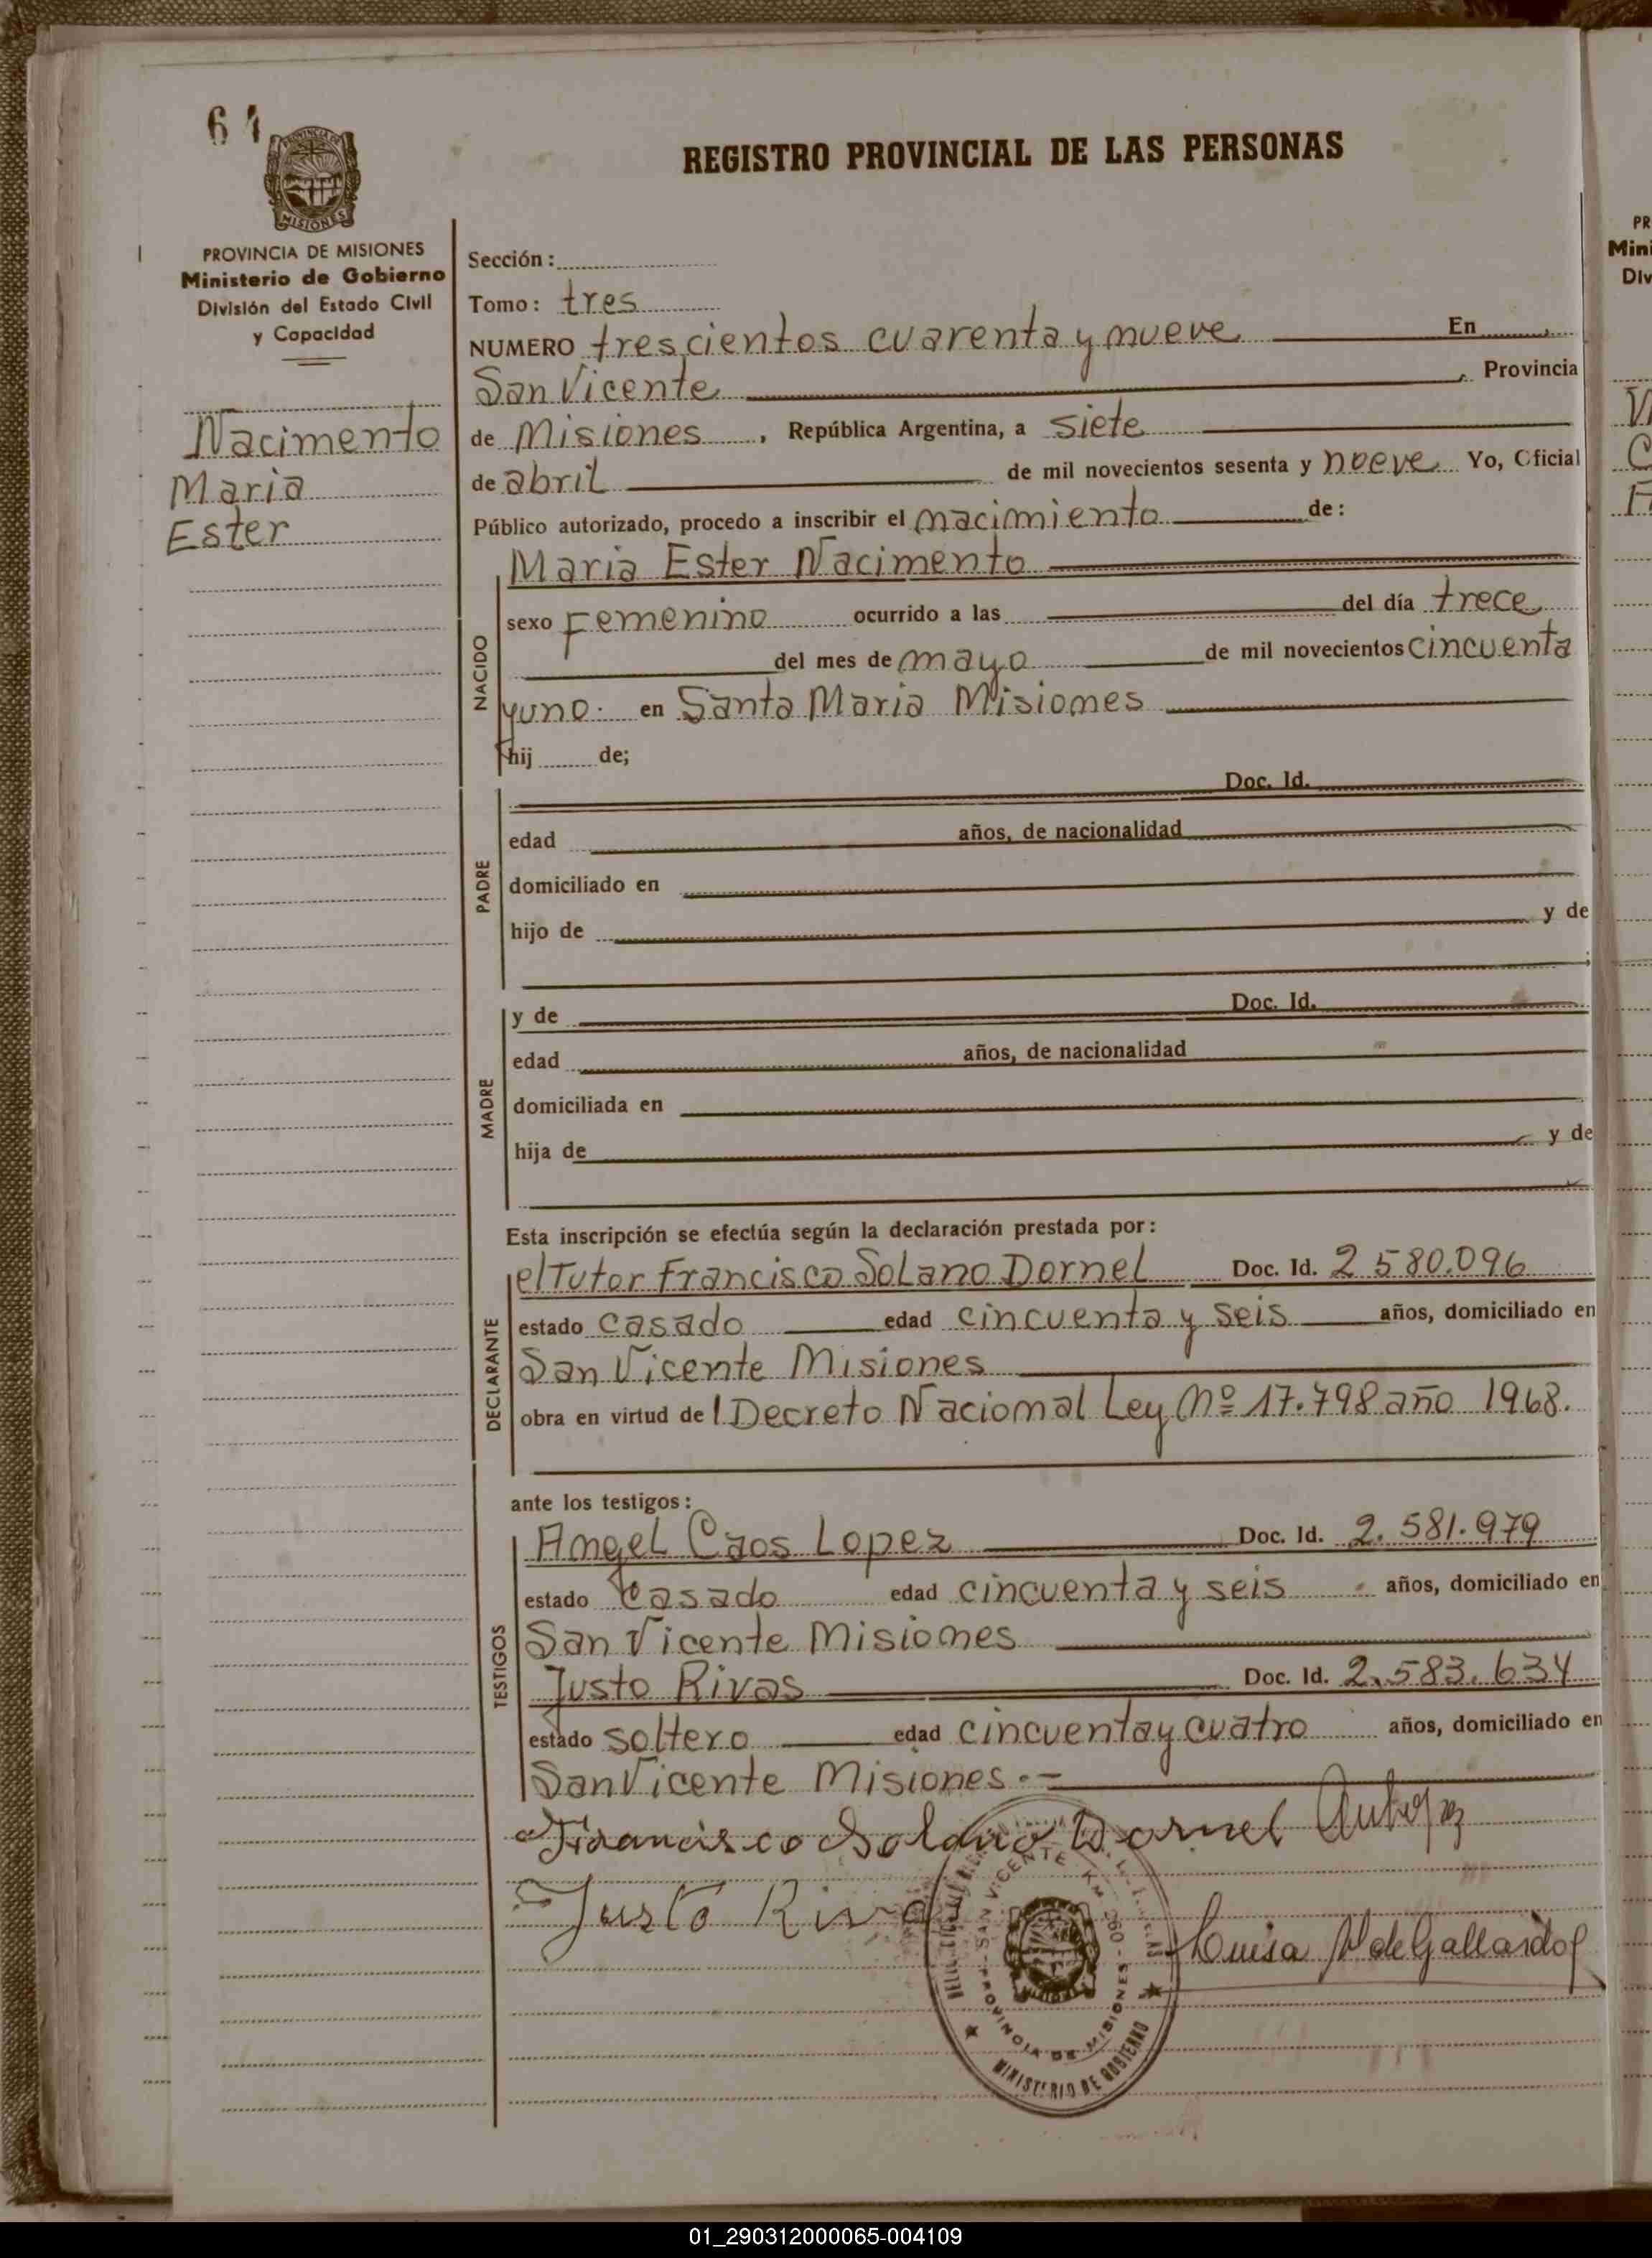 64
PROVINCIA DE MISIONES
MISIONES
REGISTRO PROVINCIAL DE LAS PERSONAS
PROVINCIA DE MISIONES
Ministerio de Gobierno
División del Estado Civil
y Capacidad
Nacimento
Maria
Ester
Sección:
Tomo: tres
NUMERO trescientos cuarenta y nueve En
San Vicente, Provincia
de Misiones, República Argentina, a siete
de abril de mil novecientos sesenta y nueve Yo, Oficial
Público autorizado, procedo a inscribir el nacimiento de:
NACIDO
Maria Ester Nacimento
sexo Femenino ocurrido a las del día trece
del mes de mayo de mil novecientos cincuenta
y uno. en Santa Maria Misiones
hij de;
PADRE
Doc. Id.
edad años, de nacionalidad
domiciliado en
hijo de y de
MADRE
y de Doc. Id.
edad años, de nacionalidad
domiciliada en
hija de y de
Esta inscripción se efectúa según la declaración prestada por:
DECLARANTE
el Tutor Francisco Solano Dornel Doc. Id. 2580.096
estado casado edad cincuenta y seis años, domiciliado en
San Vicente Misiones
obra en virtud del Decreto Nacional Ley Nº 17.798 año 1968.
ante los testigos:
TESTIGOS
Angel Caos Lopez Doc. Id. 2.581.979
estado Casado edad cincuenta y seis años, domiciliado en
San Vicente Misiones
Justo Rivas Doc. Id. 2.583.634
estado soltero edad cincuenta y cuatro años, domiciliado en
San Vicente Misiones.-
Francisco Solano Dornel
Justo Rivas
Luisa de Gallardo
SAN VICENTE KM 260 - PROVINCIA DE MISIONES
MINISTERIO DE GOBIERNO
PR
Mini
Div
01_290312000065-004109